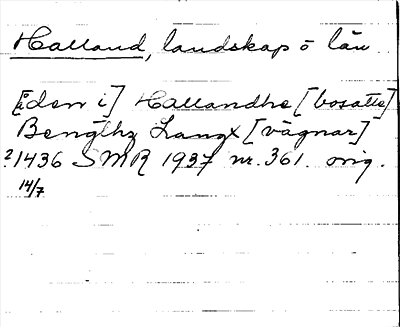 Halland, landskap o län
[Åden i] Hallandhe [bosatte]
Bengthz Langx [vägnar]
?1436 SMR 1937 nr. 361. orig.
14/7